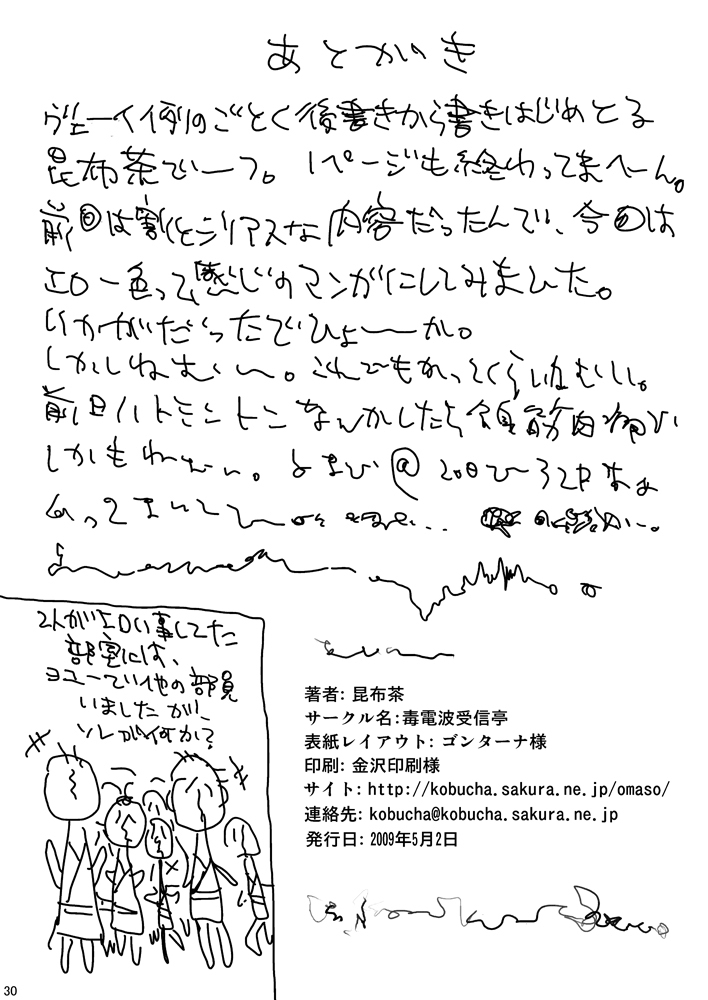 あとがき
ヴェーイ例のごとく後書きから書きはじめとる
昆布茶でーフ。1ページも終わってまへーん。
前回は割とシリアスな内容だったんで、今回は
エロ一色って感じのマンガにしてみまひた。
いかがだったでひょーーか。
しかしねむいー。これでもかってくらいねむいし。
前日バトミントンなんかしたら全身筋肉痛でい
しかもねむい。
2人がエロい事してた
部室には、
ヨユーで他の部員
いましたが、
ソレが何か?
著者: 昆布茶
サークル名:毒電波受信亭
表紙レイアウト: ゴンターナ様
印刷: 金沢印刷様
サイト: http://kobucha.sakura.ne.jp/omaso/
連絡先: kobucha@kobucha.sakura.ne.jp
発行日: 2009年5月2日
30